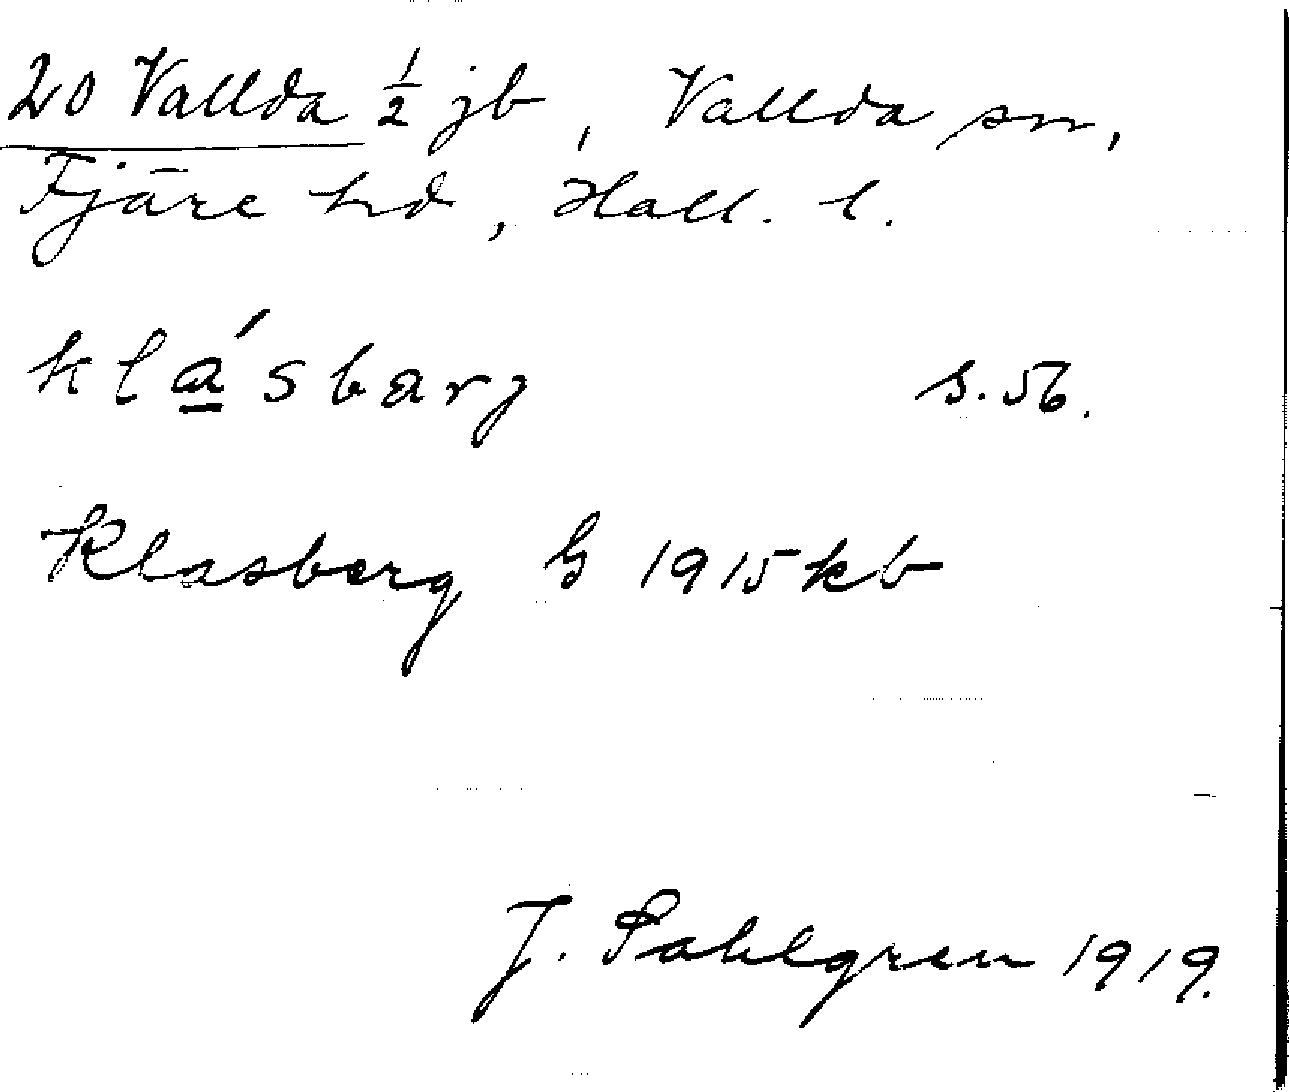 20 Vallda ½ jb, Vallda sn,
Fjäre hd, Hall. l.
klásbarj s. 56.
Klasberg G 1915 kb
J. Sahlgren 1919.